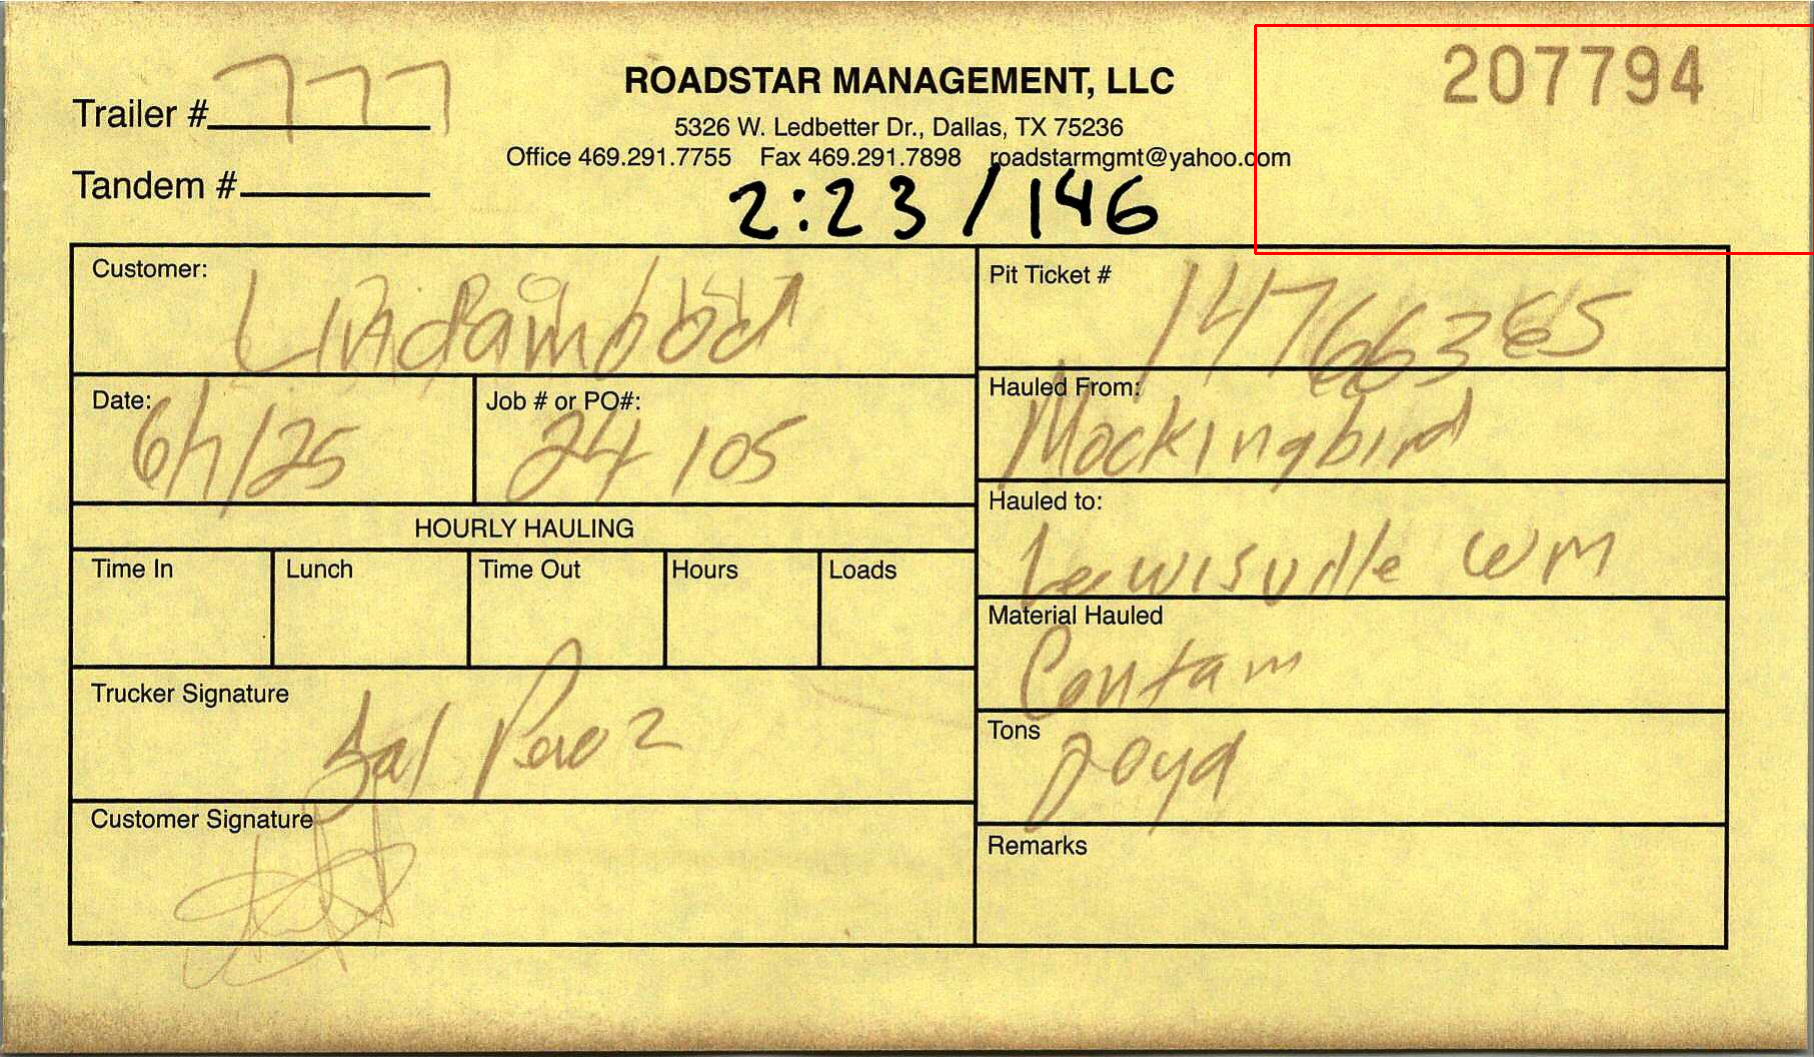 207794
Trailer # 777
ROADSTAR MANAGEMENT, LLC
5326 W. Ledbetter Dr., Dallas, TX 75236
Office 469.291.7755 Fax 469.291.7898 roadstarmgmt@yahoo.com
Tandem #
2:23 / 146
Customer: Lindamood
Pit Ticket # 14766365
Date: 6/7/25
Job # or PO#: 24105
Hauled From: Mockingbird
Hauled to: Lewisville WM
HOURLY HAULING
Time In Lunch Time Out Hours Loads
Material Hauled Contam
Trucker Signature Sal Perez
Tons 20yd
Customer Signature
Remarks